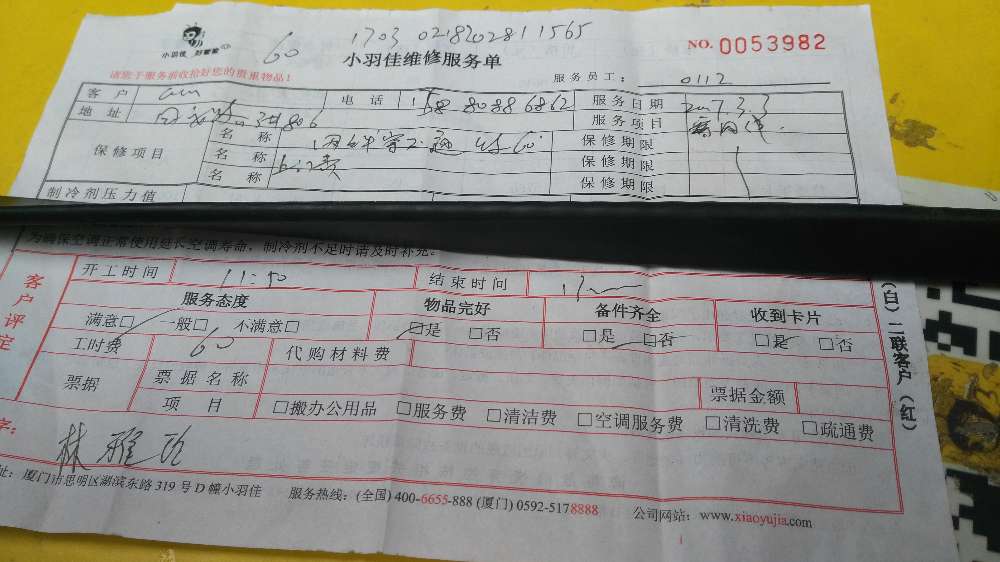 小羽佳 好管家
60
1703 021820281 1565
NO. 0053982
小羽佳维修服务单
请您于服务前收拾好您的贵重物品!
服务员工: 0112
客户 电话 158 8088 6862 服务日期 2017.3.3
地址 806 服务项目
保修项目 名称 保修期限
名称 保修期限
名称 保修期限
制冷剂压力值
为确保空调正常使用延长空调寿命,制冷剂不足时请及时补充。
客户评定
开工时间 11:50 结束时间
服务态度 物品完好 备件齐全 收到卡片
满意□ 一般□ 不满意□ □是 □否 □是 □否 □是 □否
工时费 60 代购材料费
票据 票据名称 票据金额
项目 □搬办公用品 □服务费 □清洁费 □空调服务费 □清洗费 □疏通费
字:
林雅
址: 厦门市思明区湖滨东路 319 号 D 幢小羽佳 服务热线: (全国) 400-6655-888 (厦门) 0592-5178888 公司网站: www.xiaoyujia.com
(白) 二联客户 (红)